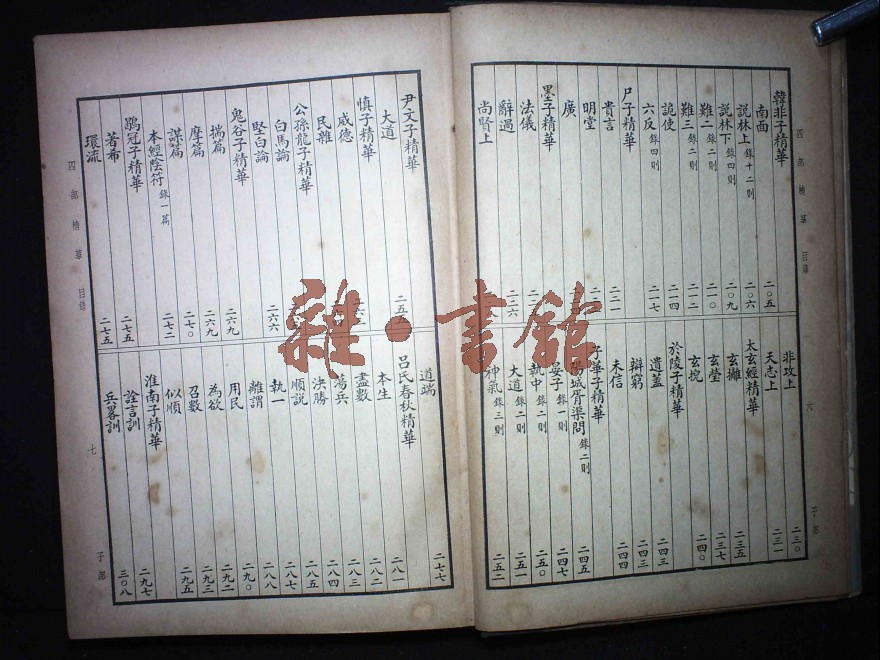 四部精華 目錄
韓非子精華
南面 二〇五
說林上 錄十二則 二〇六
說林下 錄四則 二〇九
難二 錄二則 二一〇
難三 錄二則 二一二
詭使 二一四
六反 錄四則 二一七
尸子精華
貴言 二二一
明堂
廣
墨子精華
法儀
辭過 二二六
尚賢上
非攻上 二三〇
天志上 二三一
太玄經精華
玄攡 二三五
玄瑩 二三七
玄掜 二四〇
於陵子精華
遺蓋 二四三
辯窮 二四三
未信 二四四
子華子精華
陽城胥渠問 錄二則 二四五
晏子 錄一則 二四七
執中 錄二則 二五〇
大道 錄二則 二五一
神氣 錄三則 二五二
六
子部
尹文子精華
大道 二五五
慎子精華
威德
民雜
公孫龍子精華
白馬論
堅白論 二六六
鬼谷子精華
揣篇 二六九
摩篇 二六九
謀篇 二七〇
本經陰符 錄一篇 二七二
鶡冠子精華
著希 二七五
環流 二七五
道端 二七七
呂氏春秋精華
本生 二八一
盡數 二八二
蕩兵 二八三
決勝 二八四
順說 二八五
執一 二八七
離謂 二八八
用民 二九〇
為欲 二九二
召數 二九三
似順 二九五
淮南子精華
詮言訓 二九七
兵畧訓 三〇八
四部精華 目錄
七
子部
雜·書館